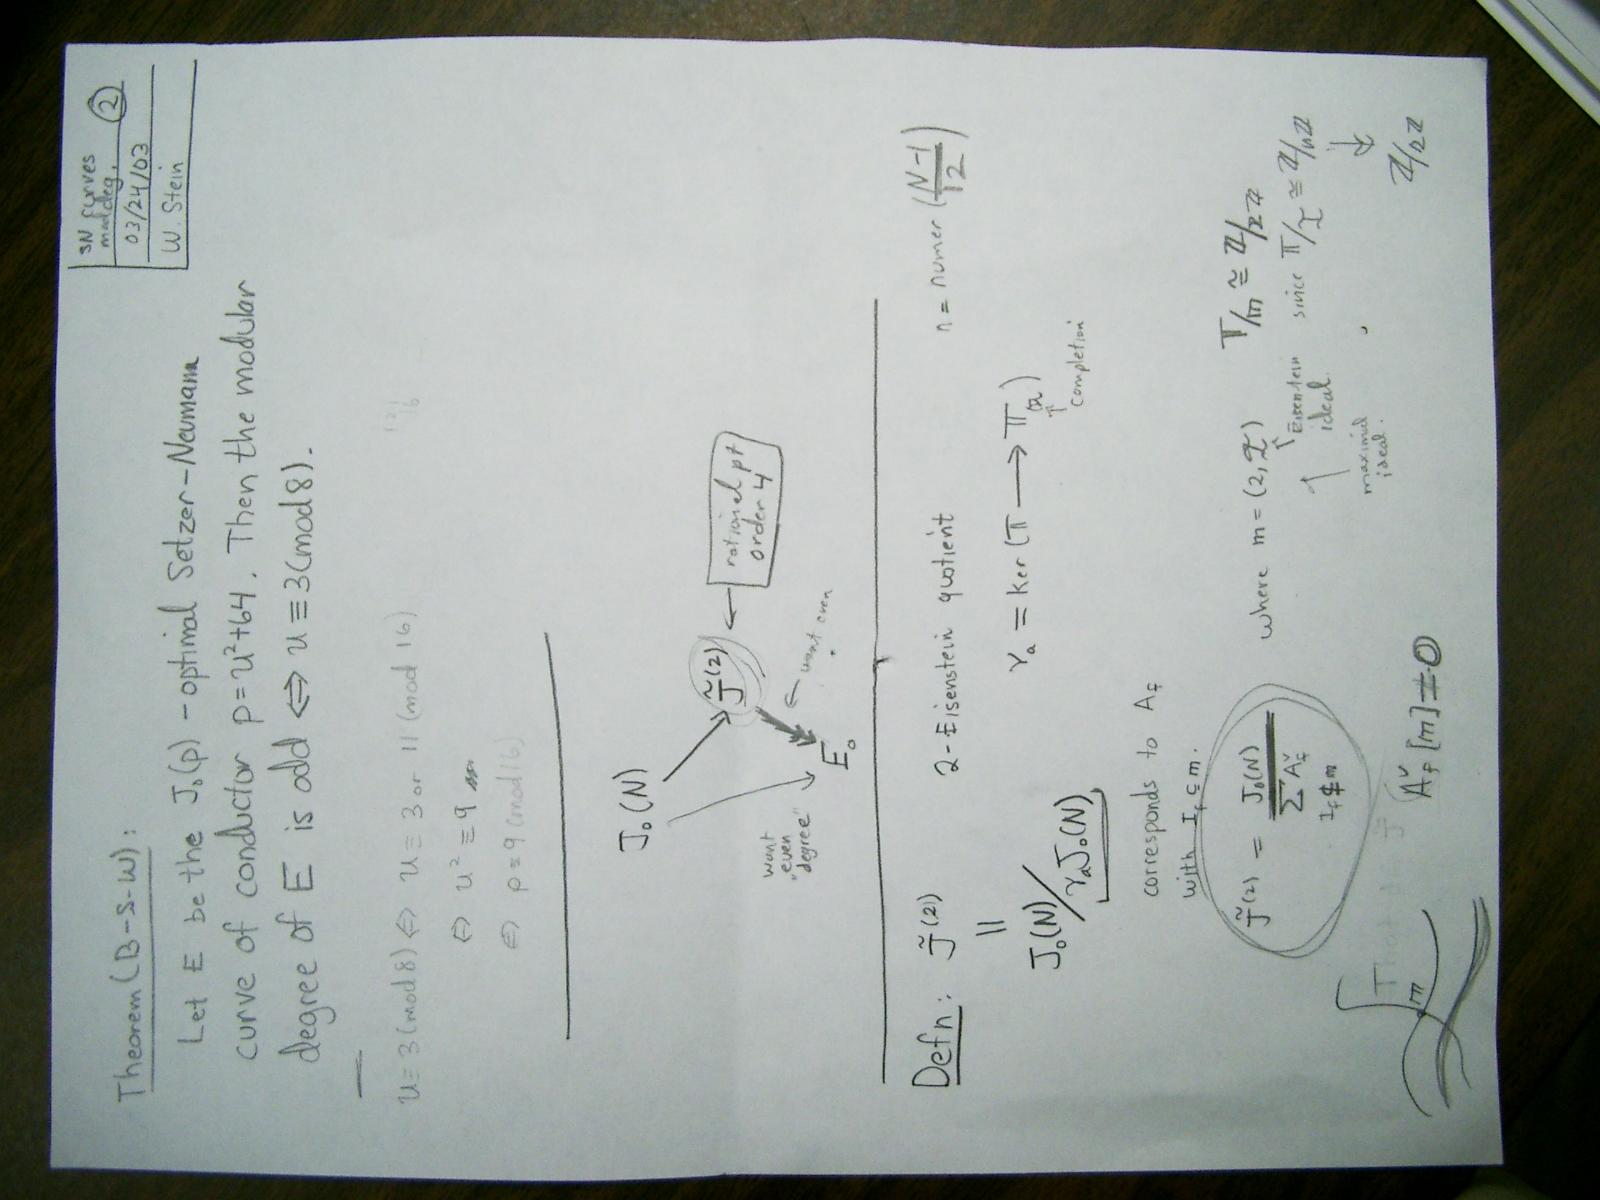 SN curves
mod deg.
②
03/24/03
W. Stein
Theorem (B-S-W):
Let E be the J₀(p) - optimal Setzer-Neumann
curve of conductor p=u²+64. Then the modular
degree of E is odd ⇔ u≡3(mod 8).
u≡3(mod 8) ⇔ u≡3 or 11 (mod 16)
⇔ u²≡9
⇔ p≡9 (mod 16)
J₀(N)
J̃⁽²⁾
rational pt
order 4
want
"even
degree"
want even
E₀
Defn: J̃⁽²⁾ 2-Eisenstein quotient n = numer (N-1/12)
=
J₀(N)/γₐJ₀(N) γₐ = Ker(𝕋 → 𝕋ₐ)
completion
corresponds to A_f
with I_f ⊆ m.
J̃⁽²⁾ = J₀(N) / Σ A_f^∨
I_f ⊈ m
where m = (2, I) 𝕋/m ≅ ℤ/2ℤ
Eisenstein
ideal
since 𝕋/I ≅ ℤ/nℤ
↓
ℤ/2ℤ
maximal
ideal.
A_f^∨[m] ≠ 0